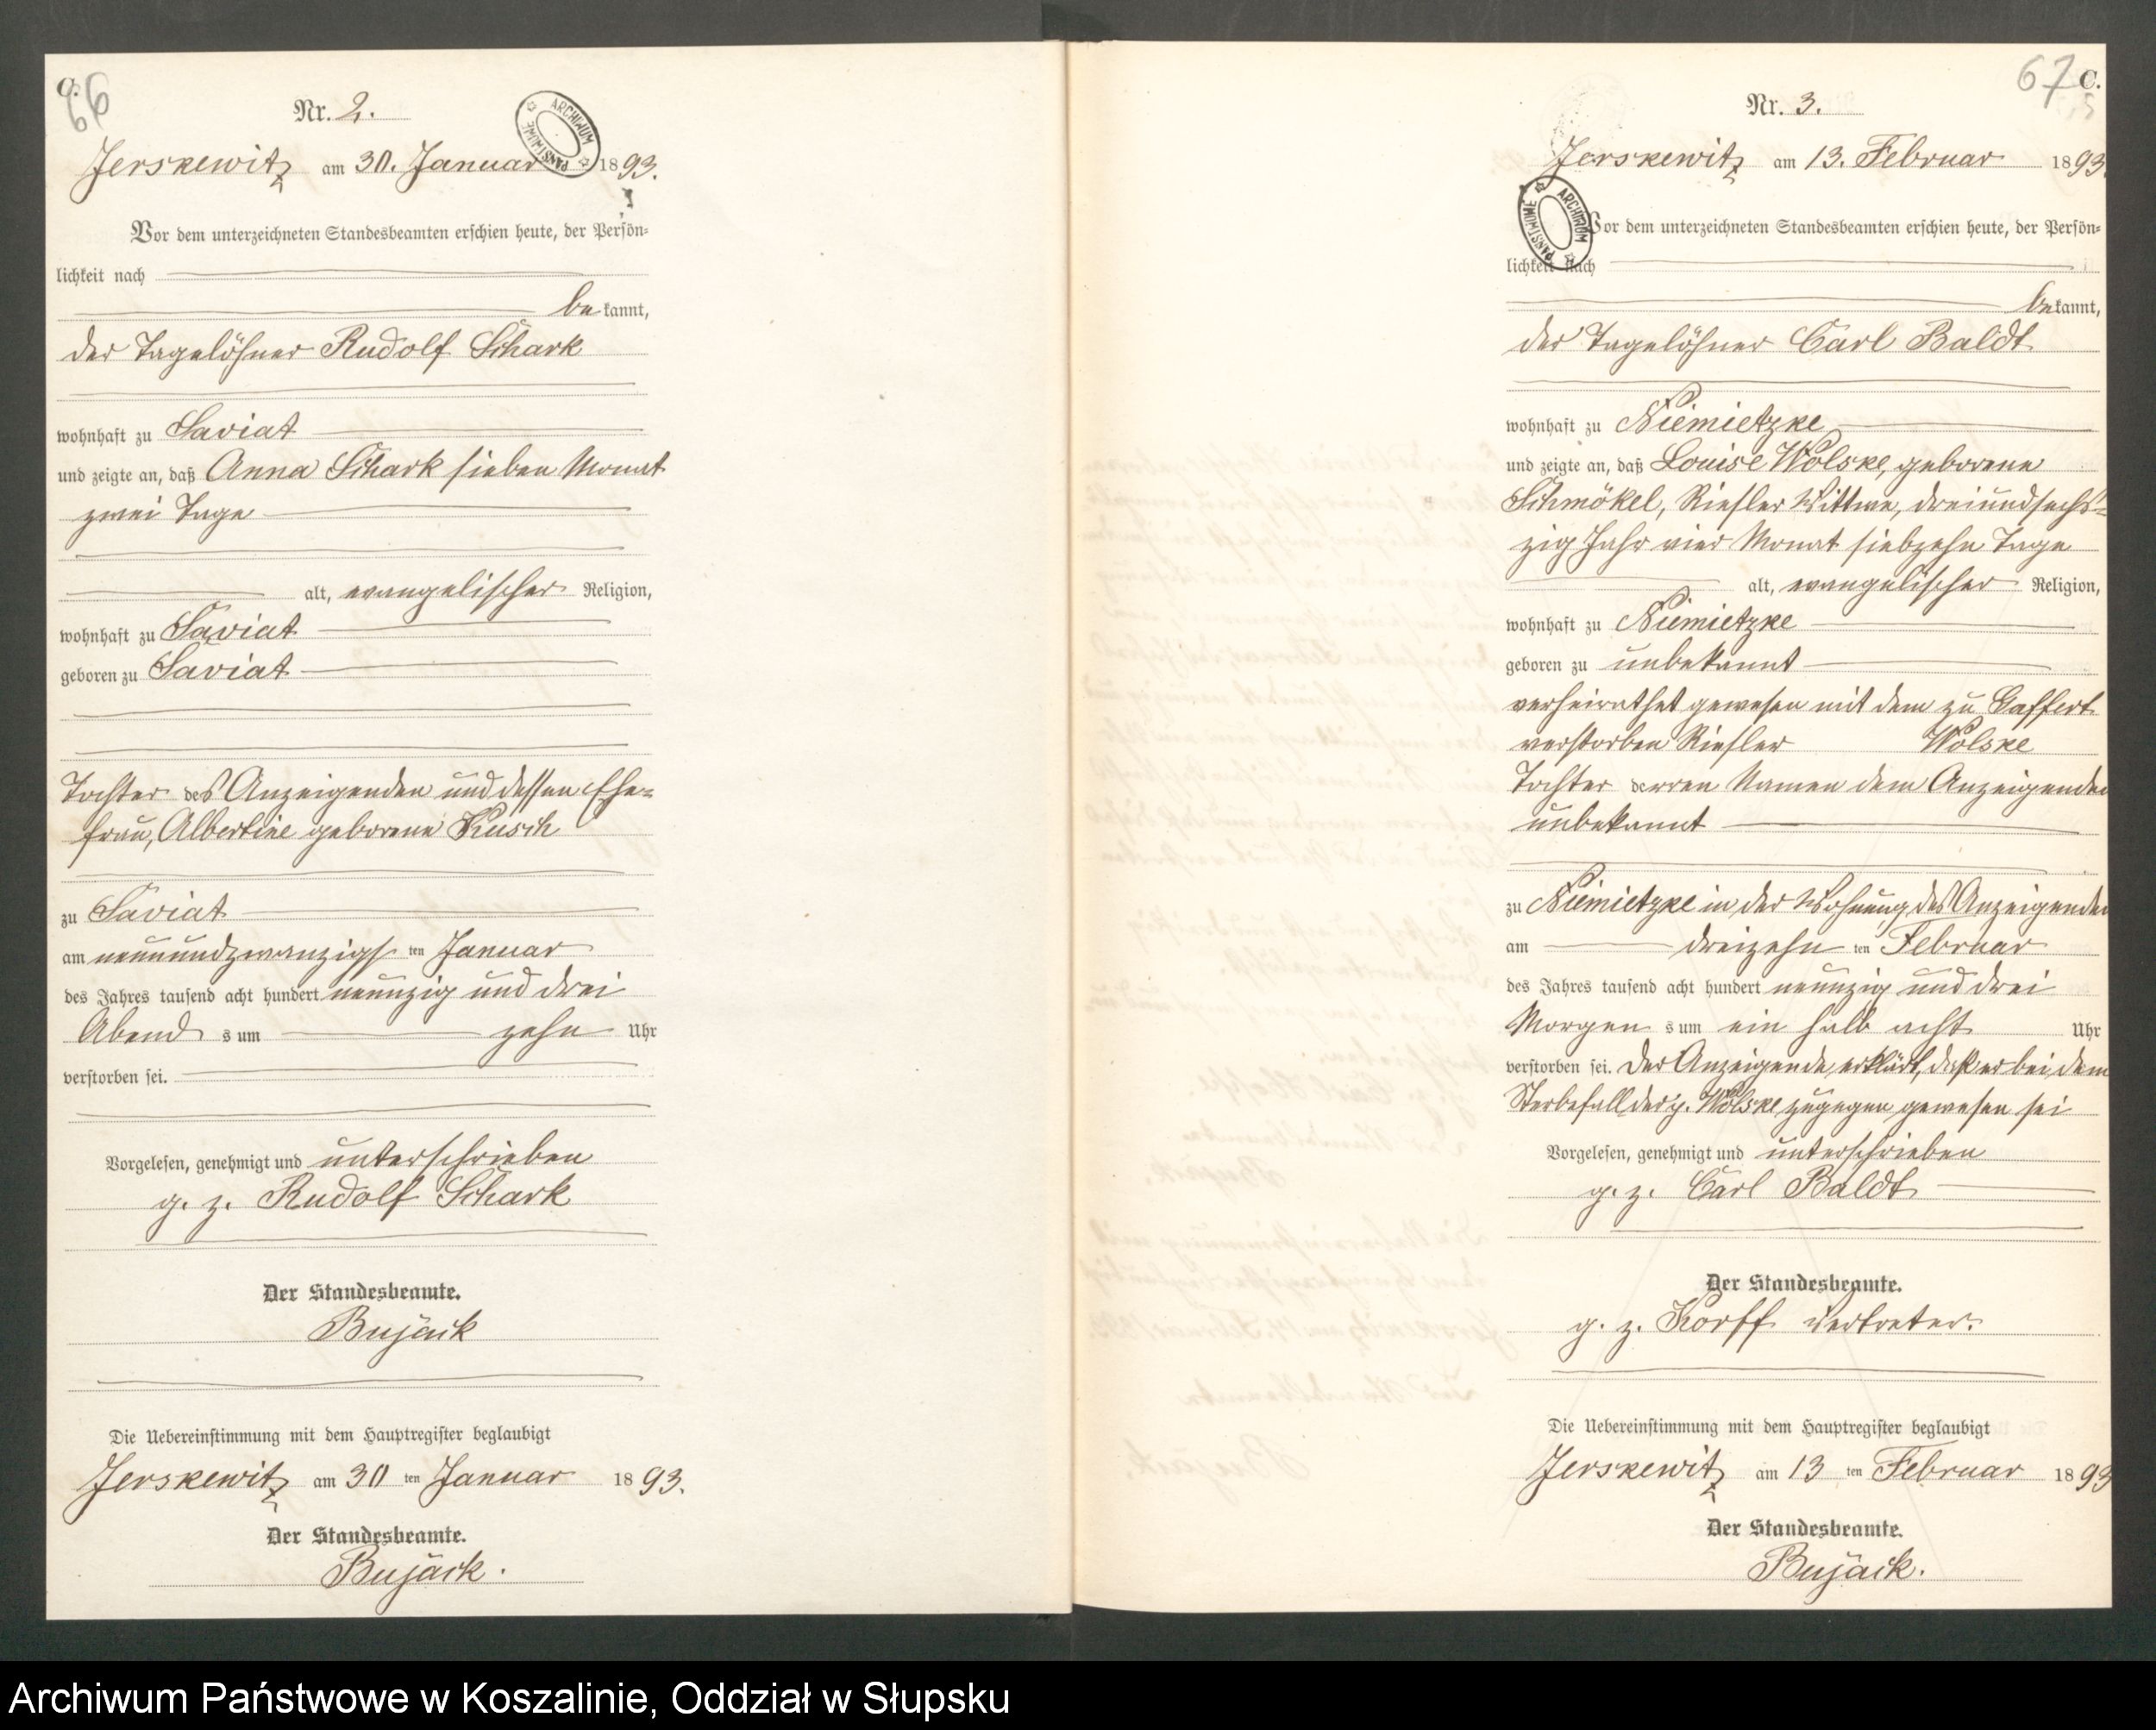 C.
66
Nr. 2.
ARCHIWUM PAŃSTWOWE
Jerskewitz am 30. Januar 1893.
Vor dem unterzeichneten Standesbeamten erschien heute, der Persön-
lichkeit nach
bekannt,
der Tagelöhner Rudolf Schark
wohnhaft zu Saviat
und zeigte an, daß Anna Schark sieben Monat
zwei Tage
alt, evangelischer Religion,
wohnhaft zu Saviat
geboren zu Saviat
Tochter des Anzeigenden und dessen Ehe-
frau, Albertine geborene Kusch
zu Saviat
am neunundzwanzigsten Januar
des Jahres tausend acht hundert neunzig und drei
Abends um zehn Uhr
verstorben sei.
Vorgelesen, genehmigt und unterschrieben
g. z. Rudolf Schark
Der Standesbeamte.
Bujack
Die Uebereinstimmung mit dem Hauptregister beglaubigt
Jerskewitz am 30 ten Januar 1893.
Der Standesbeamte.
Bujack.
67
C.
Nr. 3.
Jerskewitz am 13. Februar 1893.
ARCHIWUM PAŃSTWOWE
Vor dem unterzeichneten Standesbeamten erschien heute, der Persön-
lichkeit nach
bekannt,
der Tagelöhner Carl Baldt
wohnhaft zu Niemietzke
und zeigte an, daß Louise Wolske, geborene
Schmökel, Riesler Wittwe, dreiundsechs-
zig Jahr vier Monat siebzehn Tage
alt, evangelischer Religion,
wohnhaft zu Niemietzke
geboren zu unbekannt
verheirathet gewesen mit dem zu Gaffert
verstorben Riesler Wolske
Tochter derren Namen dem Anzeigenden
unbekannt
zu Niemietzke in der Wohnung des Anzeigenden
am dreizehnten Februar
des Jahres tausend acht hundert neunzig und drei
Morgens um ein halb acht Uhr
verstorben sei. Der Anzeigende erklärt, daß er bei dem
Sterbefall der p. Wolske zugegen gewesen sei
Vorgelesen, genehmigt und unterschrieben
g. z. Carl Baldt
Der Standesbeamte.
g. z. Korff Vertreter.
Die Uebereinstimmung mit dem Hauptregister beglaubigt
Jerskewitz am 13 ten Februar 1893
Der Standesbeamte.
Bujack.
Archiwum Państwowe w Koszalinie, Oddział w Słupsku